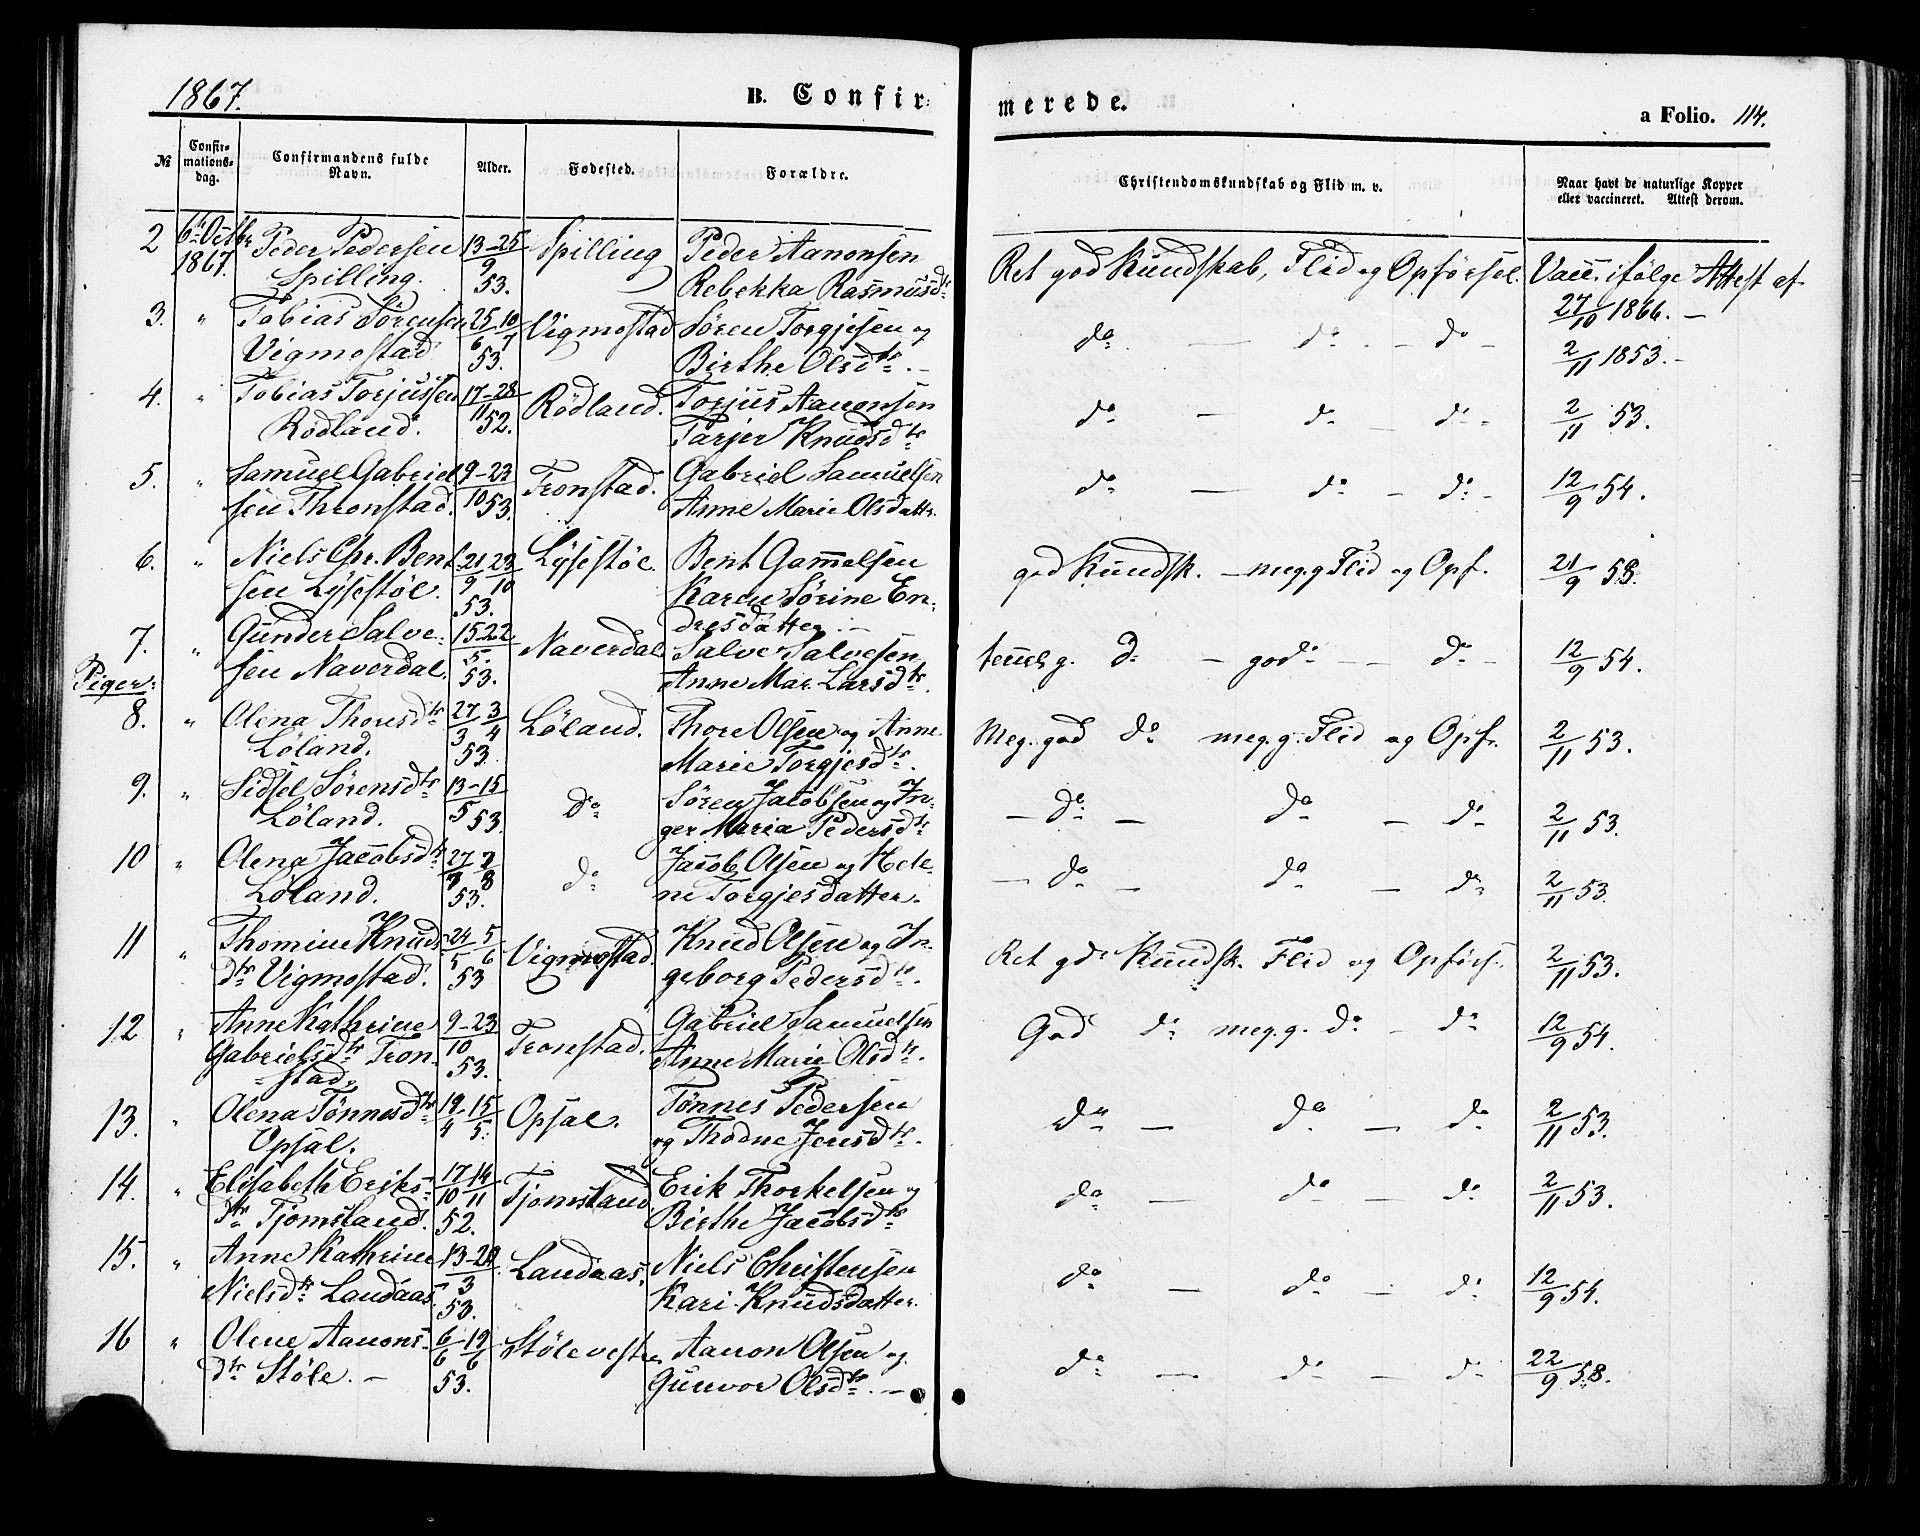 1867.
B. Confir-
merede.
a Folio. 114.
№
Confir-
mations-
dag.
Confirmandens fulde
Navn.
Alder.
Fødested.
Forældre.
Christendomskundskab og Flid m. v.
Naar havt de naturlige Kopper
eller vaccineret. Attest derom.
2 6te Octbr Peder Pedersen 13-25 Spilling Peder Aanonsen
1867. Spilling. 9 53. Rebekka Rasmusdtr.
Ret god Kundskab, Flid og Opførsel. Vacc. ifølge Attest af
27/10 1866. —
3. " Tobias Sörensen 25/6 10/7 Vigmostad Søren Torgjesen og
Vigmostad 53. Birthe Olsdtr. —
do — do — do — 2/11 1853. —
4. " Tobias Torjussen 17-28 Rödland. Torjus Aanonsen
Rödland. 11 52. Tarjer Knudsdtr
do — do — do - 2/11 53.
5. " Samuel Gabriel 9-23 Tronstad. Gabriel Samuelsen
sen Thronstad. 10 53. Anne Marie Olsdatter.
do — do — do - 12/9 54.
6. " Niels Chr. Bent- 21/9 23/10 Lysestöl. Bent Gamelsen
sen Lysestöl. 53. Karen Sörine En-
dresdatter. —
god Kundsk. — meg. g Flid og Opf. 21/9 58.
7. " Gunder Salve- 15 22 Naverdal. Salve Salvesen
sen Naverdal. 5. 53. Anne Mar. Larsdtr.
temel. g. do — god do — do — 12/9 54.
Piger:
8. " Olena Thoresdtr 27/3 3/4 Löland. Thore Olsen og Anne
Löland. 53. Marie Torgjesdtr.
Meg. god do meg. g. Flid og Opf. 2/11 53.
9. " Sidsel Sörensdtr 13-15 do Søren Jacobsen og In-
Löland. 5 53. ger Maria Pedersdtr
— do — do — do 2/11 53.
10 " Olena Jacobsdtr 27 7/8 do Jacob Olsen og Hele-
Löland. 53. ne Torgjesdatter.
— do — do — do 2/11 53.
11 " Thomine Knuds- 24/5 5/6 Vigmostad. Knud Olsen og In-
dtr Vigmostad. 53 geborg Pedersdtr.
Ret gd Kundsk. Flid og Opförs. 2/11 53.
12 " Anne Kathrine 9-23 Tronstad. Gabriel Samuelsen
Gabrielsdtr Tron- 10 Anne Marie Olsdtr.
stad. 53.
God do meg. g. do — do 12/9 54.
13. " Olena Tönnesdtr 19/4 15/5. Opsal. Tönnes Pedersen
Opsal. og Thodne Jensdtr.
do — do — do 2/11 53.
14. " Elisabeth Eriks- 17/10 14/11 Tjomsland. Erik Thorkelsen og
dtr Tjomsland. 52. Birthe Jacobsdtr
do — do — do 2/11 53.
15. " Anne Kathrine 13-20 Landaas. Niels Christensen
Nielsdtr Landaas 3 53. Kari Knudsdatter.
do — do — do 12/9 54.
16 " Olene Aanons- 6/6 19/6 Stöle vestre Aanon Olsen og
dtr Stöle. — 53. Gunvor Olsdtr. —
do — do — do 22/9 58.